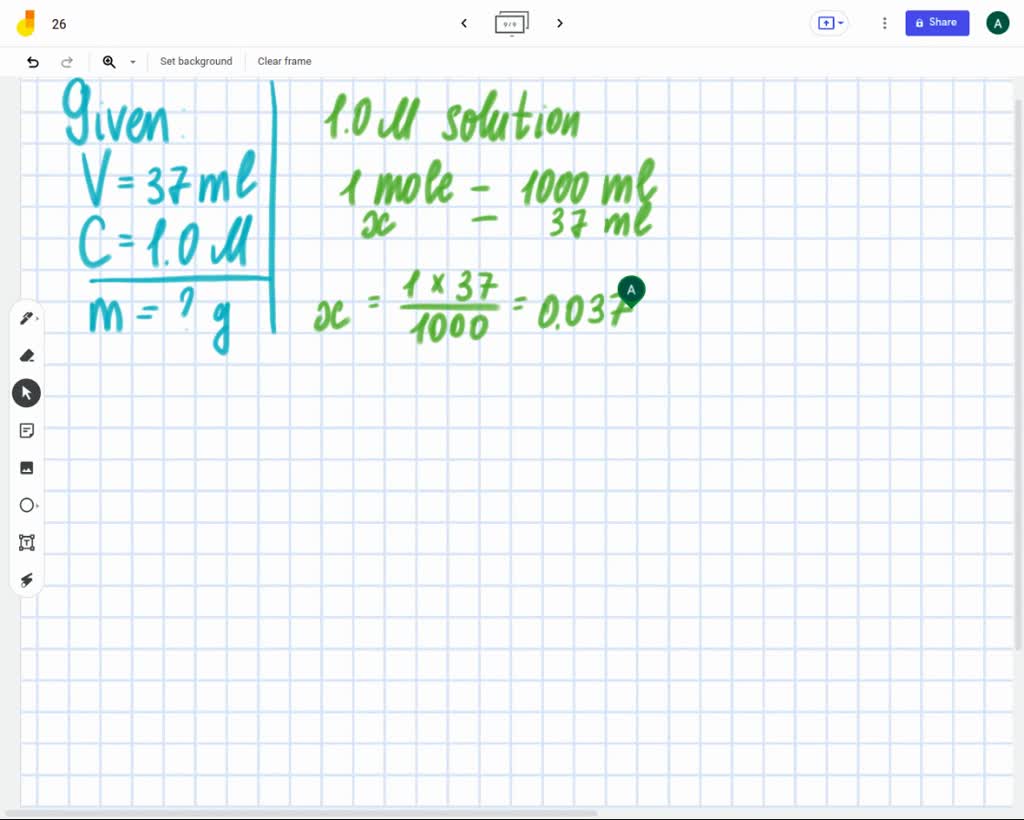 26
9/9
Share
A
Set background
Clear frame
Given:
V = 37 ml
C = 1.0 M
m = ? g
1.0 M solution
1 mole - 1000 ml
x - 37 ml
x = 1 x 37 / 1000 = 0.037
A
T